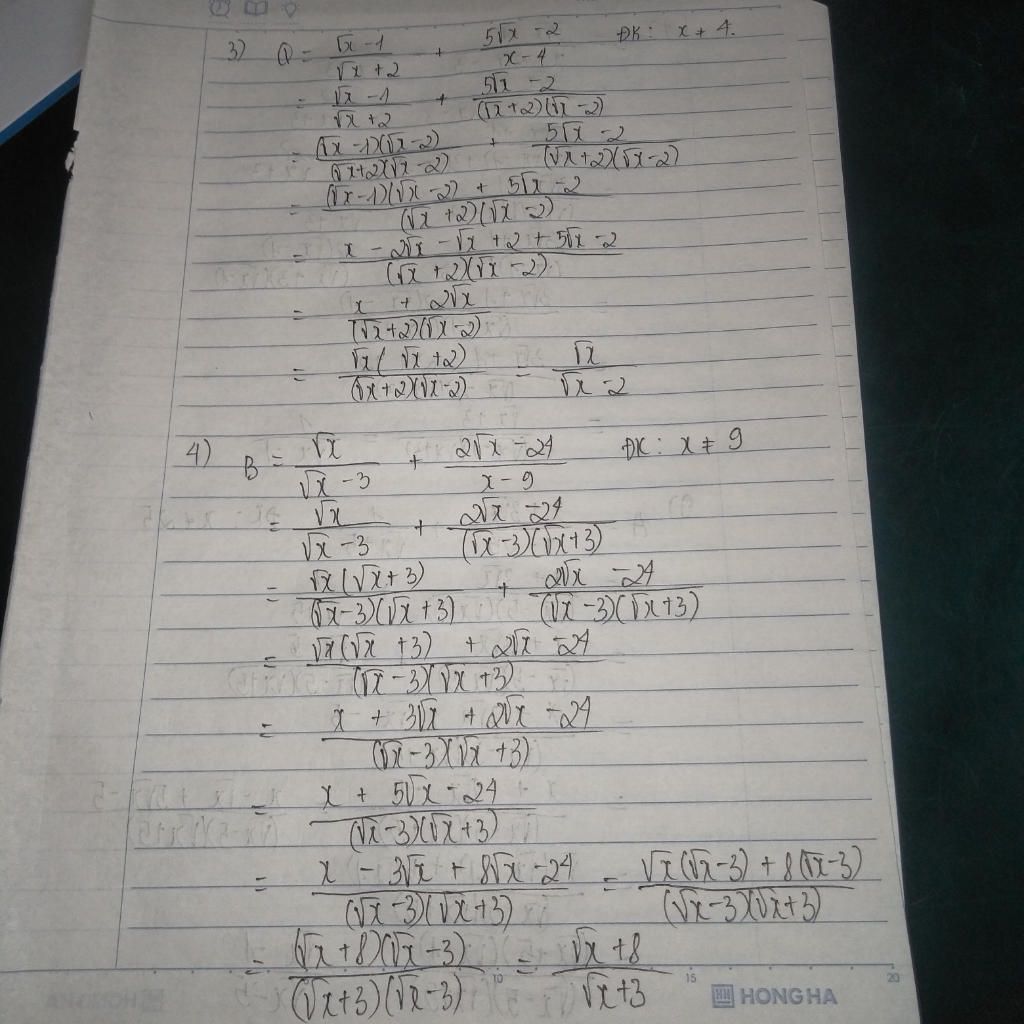 3) Q = (√x - 1)/(√x + 2) + (5√x - 2)/(x - 4) ĐK: x ≠ 4.
= (√x - 1)/(√x + 2) + (5√x - 2)/((√x + 2)(√x - 2))
= ((√x - 1)(√x - 2))/((√x + 2)(√x - 2)) + (5√x - 2)/((√x + 2)(√x - 2))
= ((√x - 1)(√x - 2) + 5√x - 2)/((√x + 2)(√x - 2))
= (x - 2√x - √x + 2 + 5√x - 2)/((√x + 2)(√x - 2))
= (x + 2√x)/((√x + 2)(√x - 2))
= (√x(√x + 2))/((√x + 2)(√x - 2)) = √x/(√x - 2)
4) B = √x/(√x - 3) + (2√x - 24)/(x - 9) ĐK: x ≠ 9
= √x/(√x - 3) + (2√x - 24)/((√x - 3)(√x + 3))
= (√x(√x + 3))/((√x - 3)(√x + 3)) + (2√x - 24)/((√x - 3)(√x + 3))
= (√x(√x + 3) + 2√x - 24)/((√x - 3)(√x + 3))
= (x + 3√x + 2√x - 24)/((√x - 3)(√x + 3))
= (x + 5√x - 24)/((√x - 3)(√x + 3))
= (x - 3√x + 8√x - 24)/((√x - 3)(√x + 3)) = (√x(√x - 3) + 8(√x - 3))/((√x - 3)(√x + 3))
= ((√x + 8)(√x - 3))/((√x + 3)(√x - 3)) = (√x + 8)/(√x + 3)
10 15 20
HONG HA